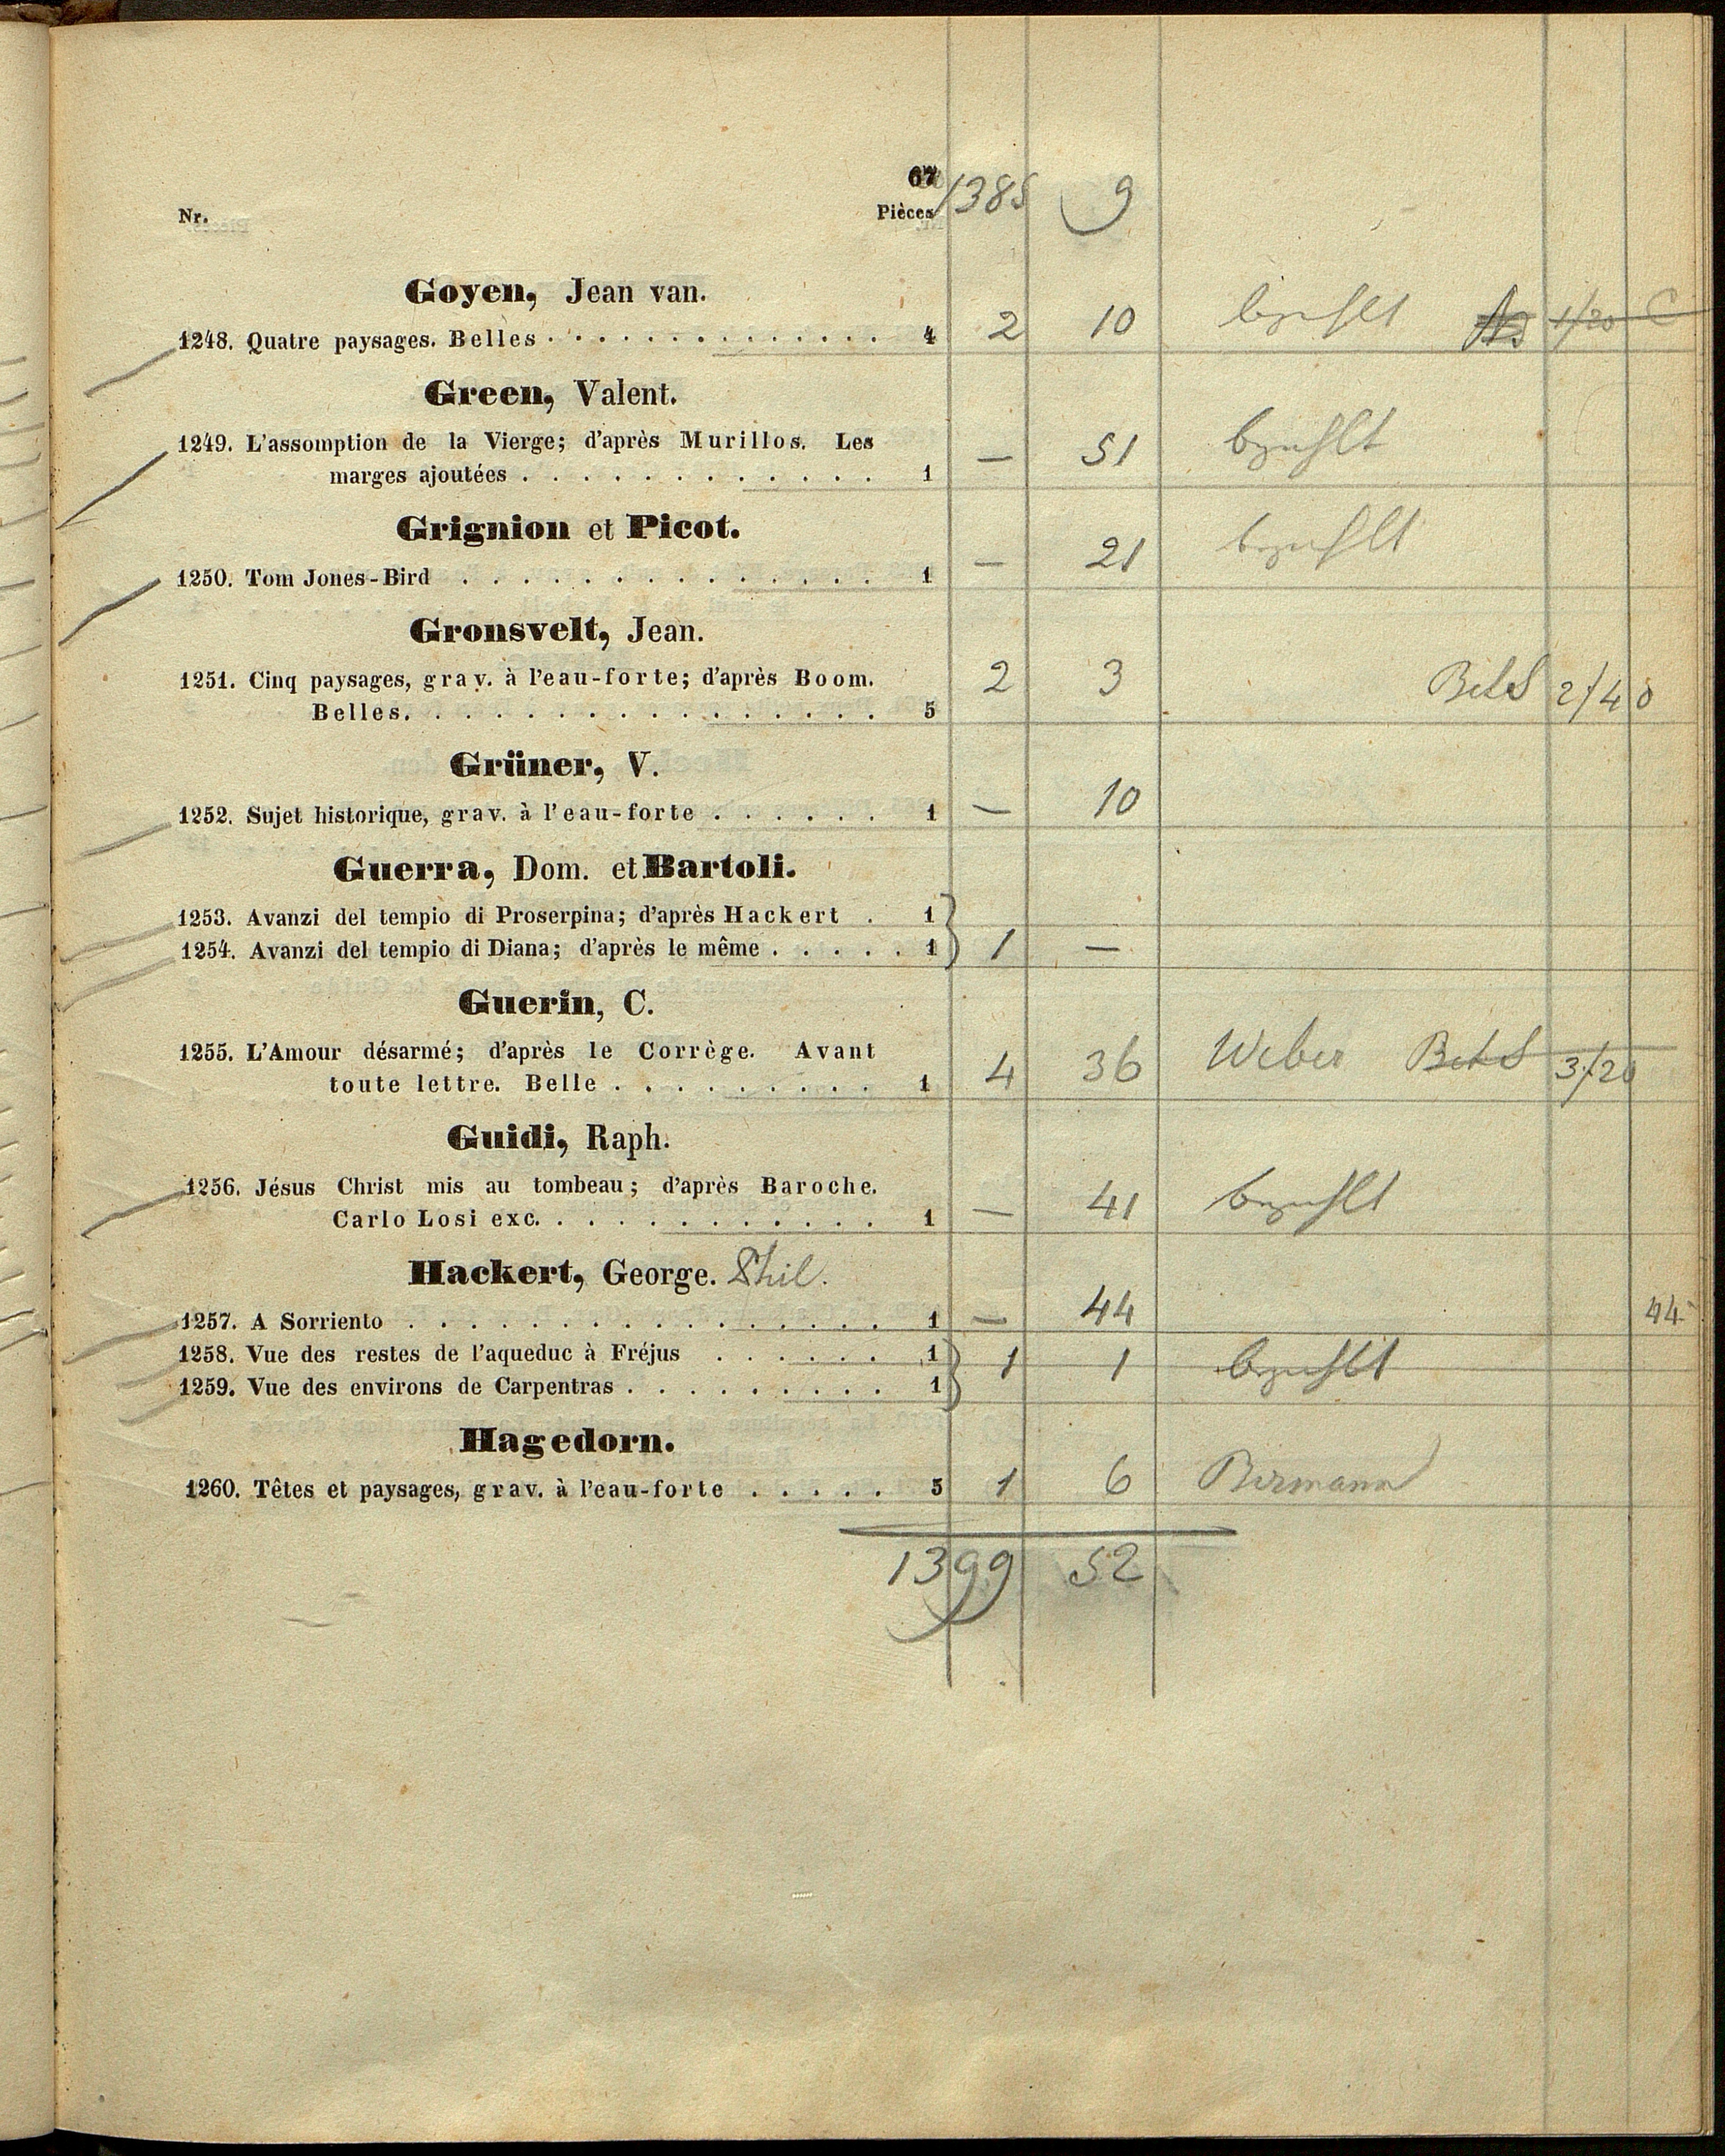 67
Nr. Pièces 1385 9
Goyen, Jean van.
1248. Quatre paysages. Belles . . . . . . . . . . . . . . 4 2 10 bezahlt 1/20 C
Green, Valent.
1249. L'assomption de la Vierge; d'après Murillos. Les
marges ajoutées . . . . . . . . . . . . 1 — 51 bezahlt
Grignion et Picot.
1250. Tom Jones-Bird . . . . . . . . . . . . . . 1 — 21 bezahlt
Gronsvelt, Jean.
1251. Cinq paysages, grav. à l'eau-forte; d'après Boom.
Belles. . . . . . . . . . . . . . . . 5 2 3 2/40
Grüner, V.
1252. Sujet historique, grav. à l'eau-forte . . . . . . 1 — 10
Guerra, Dom. et Bartoli.
1253. Avanzi del tempio di Proserpina; d'après Hackert . 1
1254. Avanzi del tempio di Diana; d'après le même . . . . . 1 } 1 —
Guerin, C.
1255. L'Amour désarmé; d'après le Corrège. Avant
toute lettre. Belle . . . . . . . . . 1 4 36 Weber 3/20
Guidi, Raph.
1256. Jésus Christ mis au tombeau; d'après Baroche.
Carlo Losi exc. . . . . . . . . . . . 1 — 41 bezahlt
Hackert, George. Phil.
1257. A Sorriento . . . . . . . . . . . . . . . . 1 — 44 44
1258. Vue des restes de l'aqueduc à Fréjus . . . . . . 1
1259. Vue des environs de Carpentras . . . . . . . . . 1 } 1 1 bezahlt
Hagedorn.
1260. Têtes et paysages, grav. à l'eau-forte . . . . . 5 1 6 Birmann
1399 52